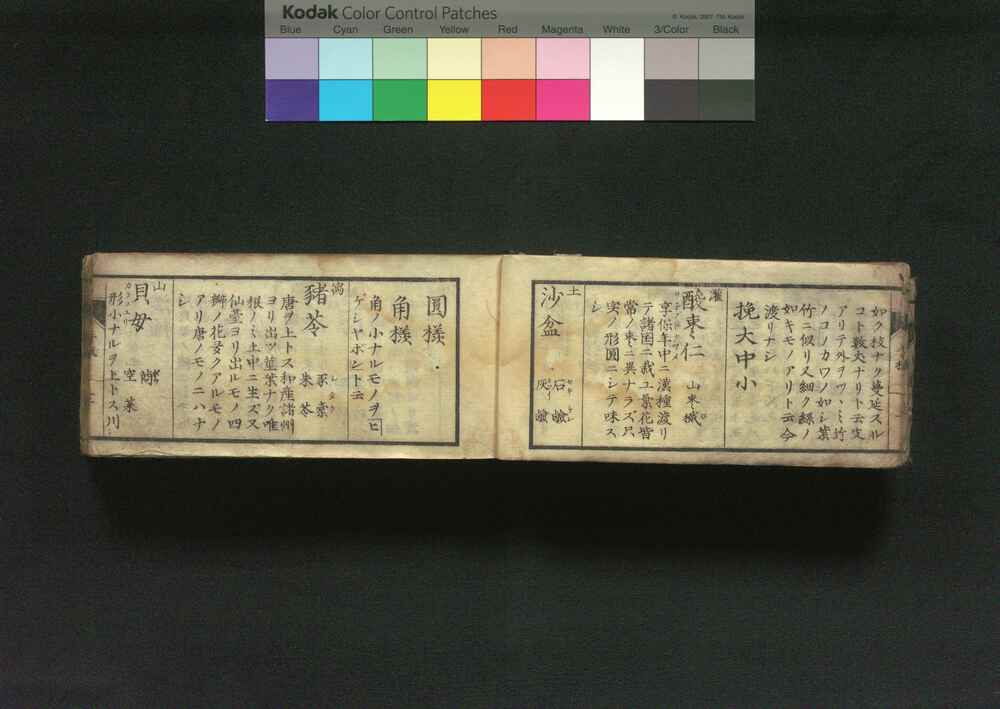 Kodak Color Control Patches
© Kodak, 2007 TM: Kodak
Blue Cyan Green Yellow Red Magenta White 3/Color Black
如ク枝ナク蔓延スル
コト数丈ナリト云実
アリテ外ヲツヽミ竹
ノコノカワノ如シ葉
竹ニ似リ又細ク線ノ
如キモノアリト云今
渡リナシ
挽大中小
灌
酸棗仁 山棗
享保年中ニ漢種渡リ
テ諸国ニ栽ユ葉花皆
常ノ棗ニ異ナラズ只
実ノ形圓ニシテ味ス
シ
土
沙盆 石
灰
圓様
角様
角ノ小ナルモノヲヒ
ゲシヤボント云
寓
豬苓 豕橐
朱苓
唐ヲ上トス和産諸州
ヨリ出ツ莖葉ナク唯
根ノミ土中ニ生ズス
仙臺ヨリ出ルモノ四
辨ノ花多クアルモノ
アリ唐ノモノニハナ
シ
山
貝母 空菓
形小ナルヲ上トス川